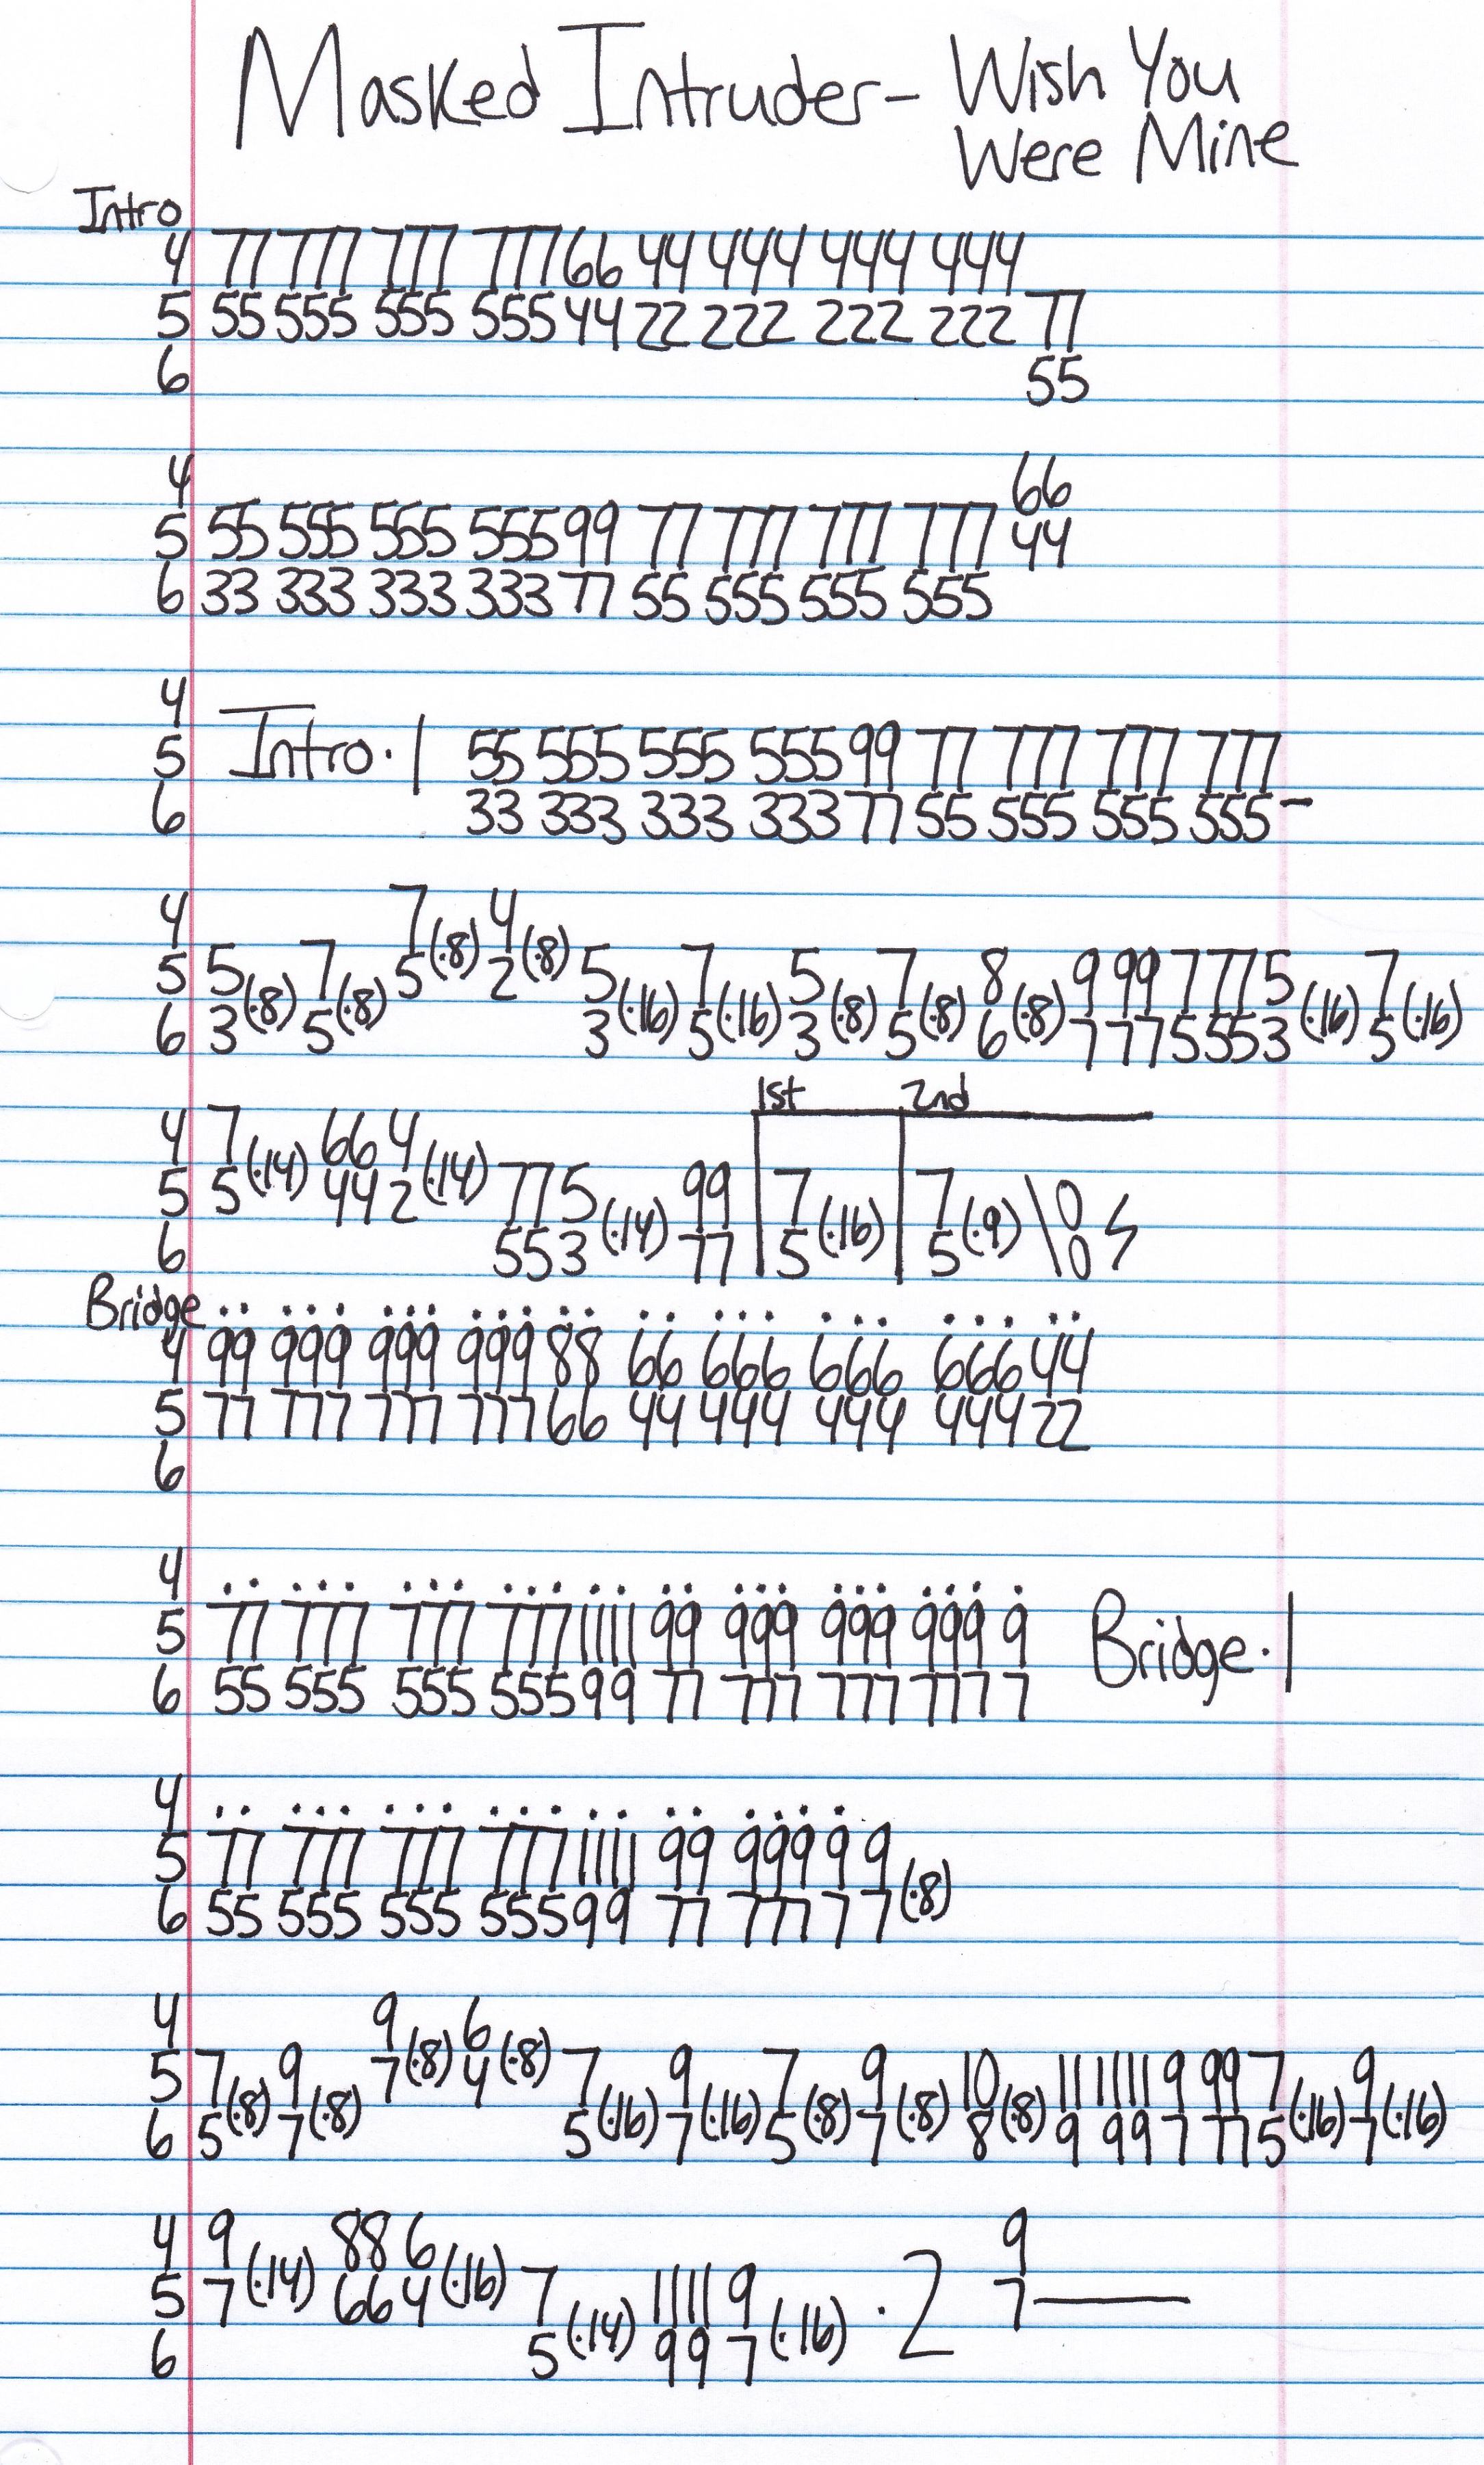 Masked Intruder - Wish You
Were Mine
Intro
4 77 777 777 777 66 44 444 444 444
5 55 555 555 555 44 22 222 222 222 77
6 55
4 66
5 55 555 555 555 99 77 777 777 777 44
6 33 333 333 333 77 55 555 555 555
4
5 Intro·1 55 555 555 555 99 77 777 777 777
6 33 333 333 333 77 55 555 555 555-
4 7 (·8) 4 (·8)
5 5 (·8) 7 (·8) 5 2 5 (·16) 7 (·16) 5 (·8) 7 (·8) 8 (·8) 9 99 7 77 5 (·16) 7 (·16)
6 3 5 3 5 3 5 6 7 77 5 55 3 5
1st 2nd
4 7 (·14) 66 4 (·14)
5 5 44 2 77 5 (·14) 99 7 (·16) 7 (·9) \0
6 55 3 77 5 5 0
Bridge
4 99 999 999 999 88 66 666 666 666 44
5 77 777 777 777 66 44 444 444 444 22
6
4
5 77 777 777 777 1111 99 999 999 999 9 Bridge·1
6 55 555 555 555 99 77 777 777 777 7
4
5 77 777 777 777 1111 99 999 9 9 (·8)
6 55 555 555 555 99 77 777 7 7
4 9 (·8) 6 (·8)
5 7 (·8) 9 (·8) 7 4 7 (·16) 9 (·16) 7 (·8) 9 (·8) 10 (·8) 11 1111 9 99 7 (·16) 9 (·16)
6 5 7 5 7 5 7 8 9 99 7 77 5 7
4 9 (·14) 88 6 (·16) 9
5 7 66 4 7 (·14) 1111 9 (·16) ·2 7
6 5 99 7